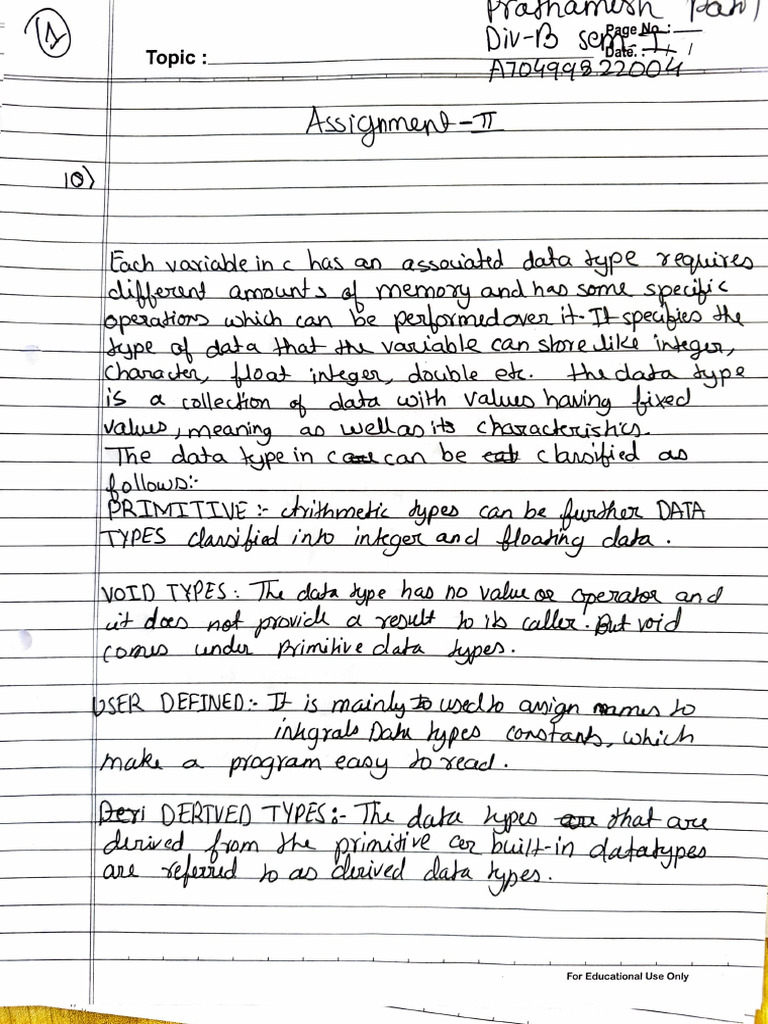 Prathamesh
Page No.:
Div-B sem-I
Date. : / /
Topic :
A70499822004
Assignment-II
10)
Each variable in c has an associated data type requires
different amounts of memory and has some specific
operations which can be performed over it. It specifies the
type of data that the variable can store like integer,
character, float integer, double etc. the data type
is a collection of data with values having fixed
values, meaning as well as its characteristics.
The data type in c can be classified as
follows:-
PRIMITIVE :- Arithmetic types can be further DATA
TYPES classified into integer and floating data.
VOID TYPES: The data type has no value or operator and
it does not provide a result to its caller. But void
comes under Primitive data types.
USER DEFINED:- It is mainly used to assign names to
integrals Data types constants, which
make a program easy to read.
DERIVED TYPES:- The data types that are
derived from the primitive or built-in datatypes
are referred to as derived data types.
For Educational Use Only